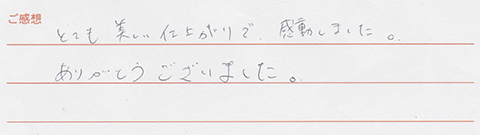 ご感想
とても美しい仕上がりで、感動しました。
ありがとうございました。